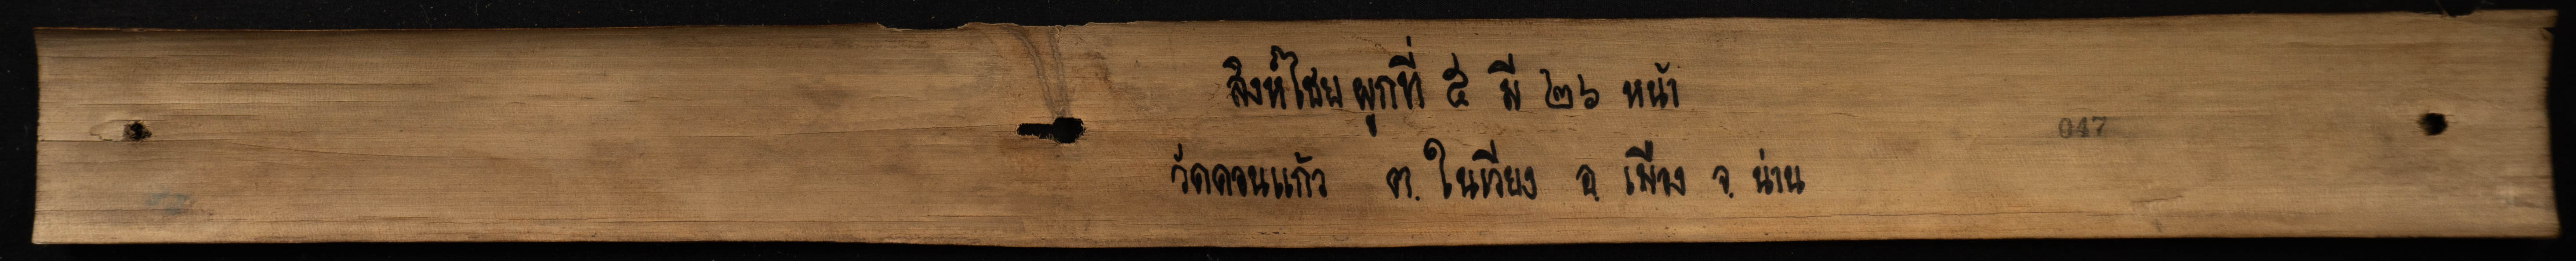 สิงห์ไชย ผูกที่ ๕ มี ๒๖ หน้า
047
วัดดอนแก้ว ต. ในเวียง อ. เมือง จ. น่าน